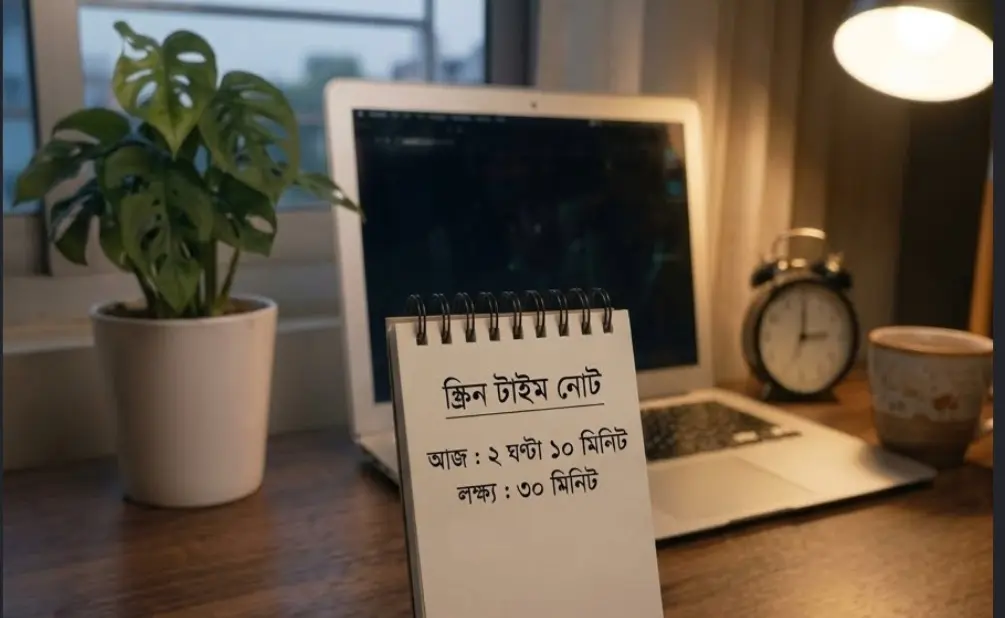 স্ক্রিন টাইম নোট
আজ : ২ ঘণ্টা ১০ মিনিট
লক্ষ্য : ৩০ মিনিট